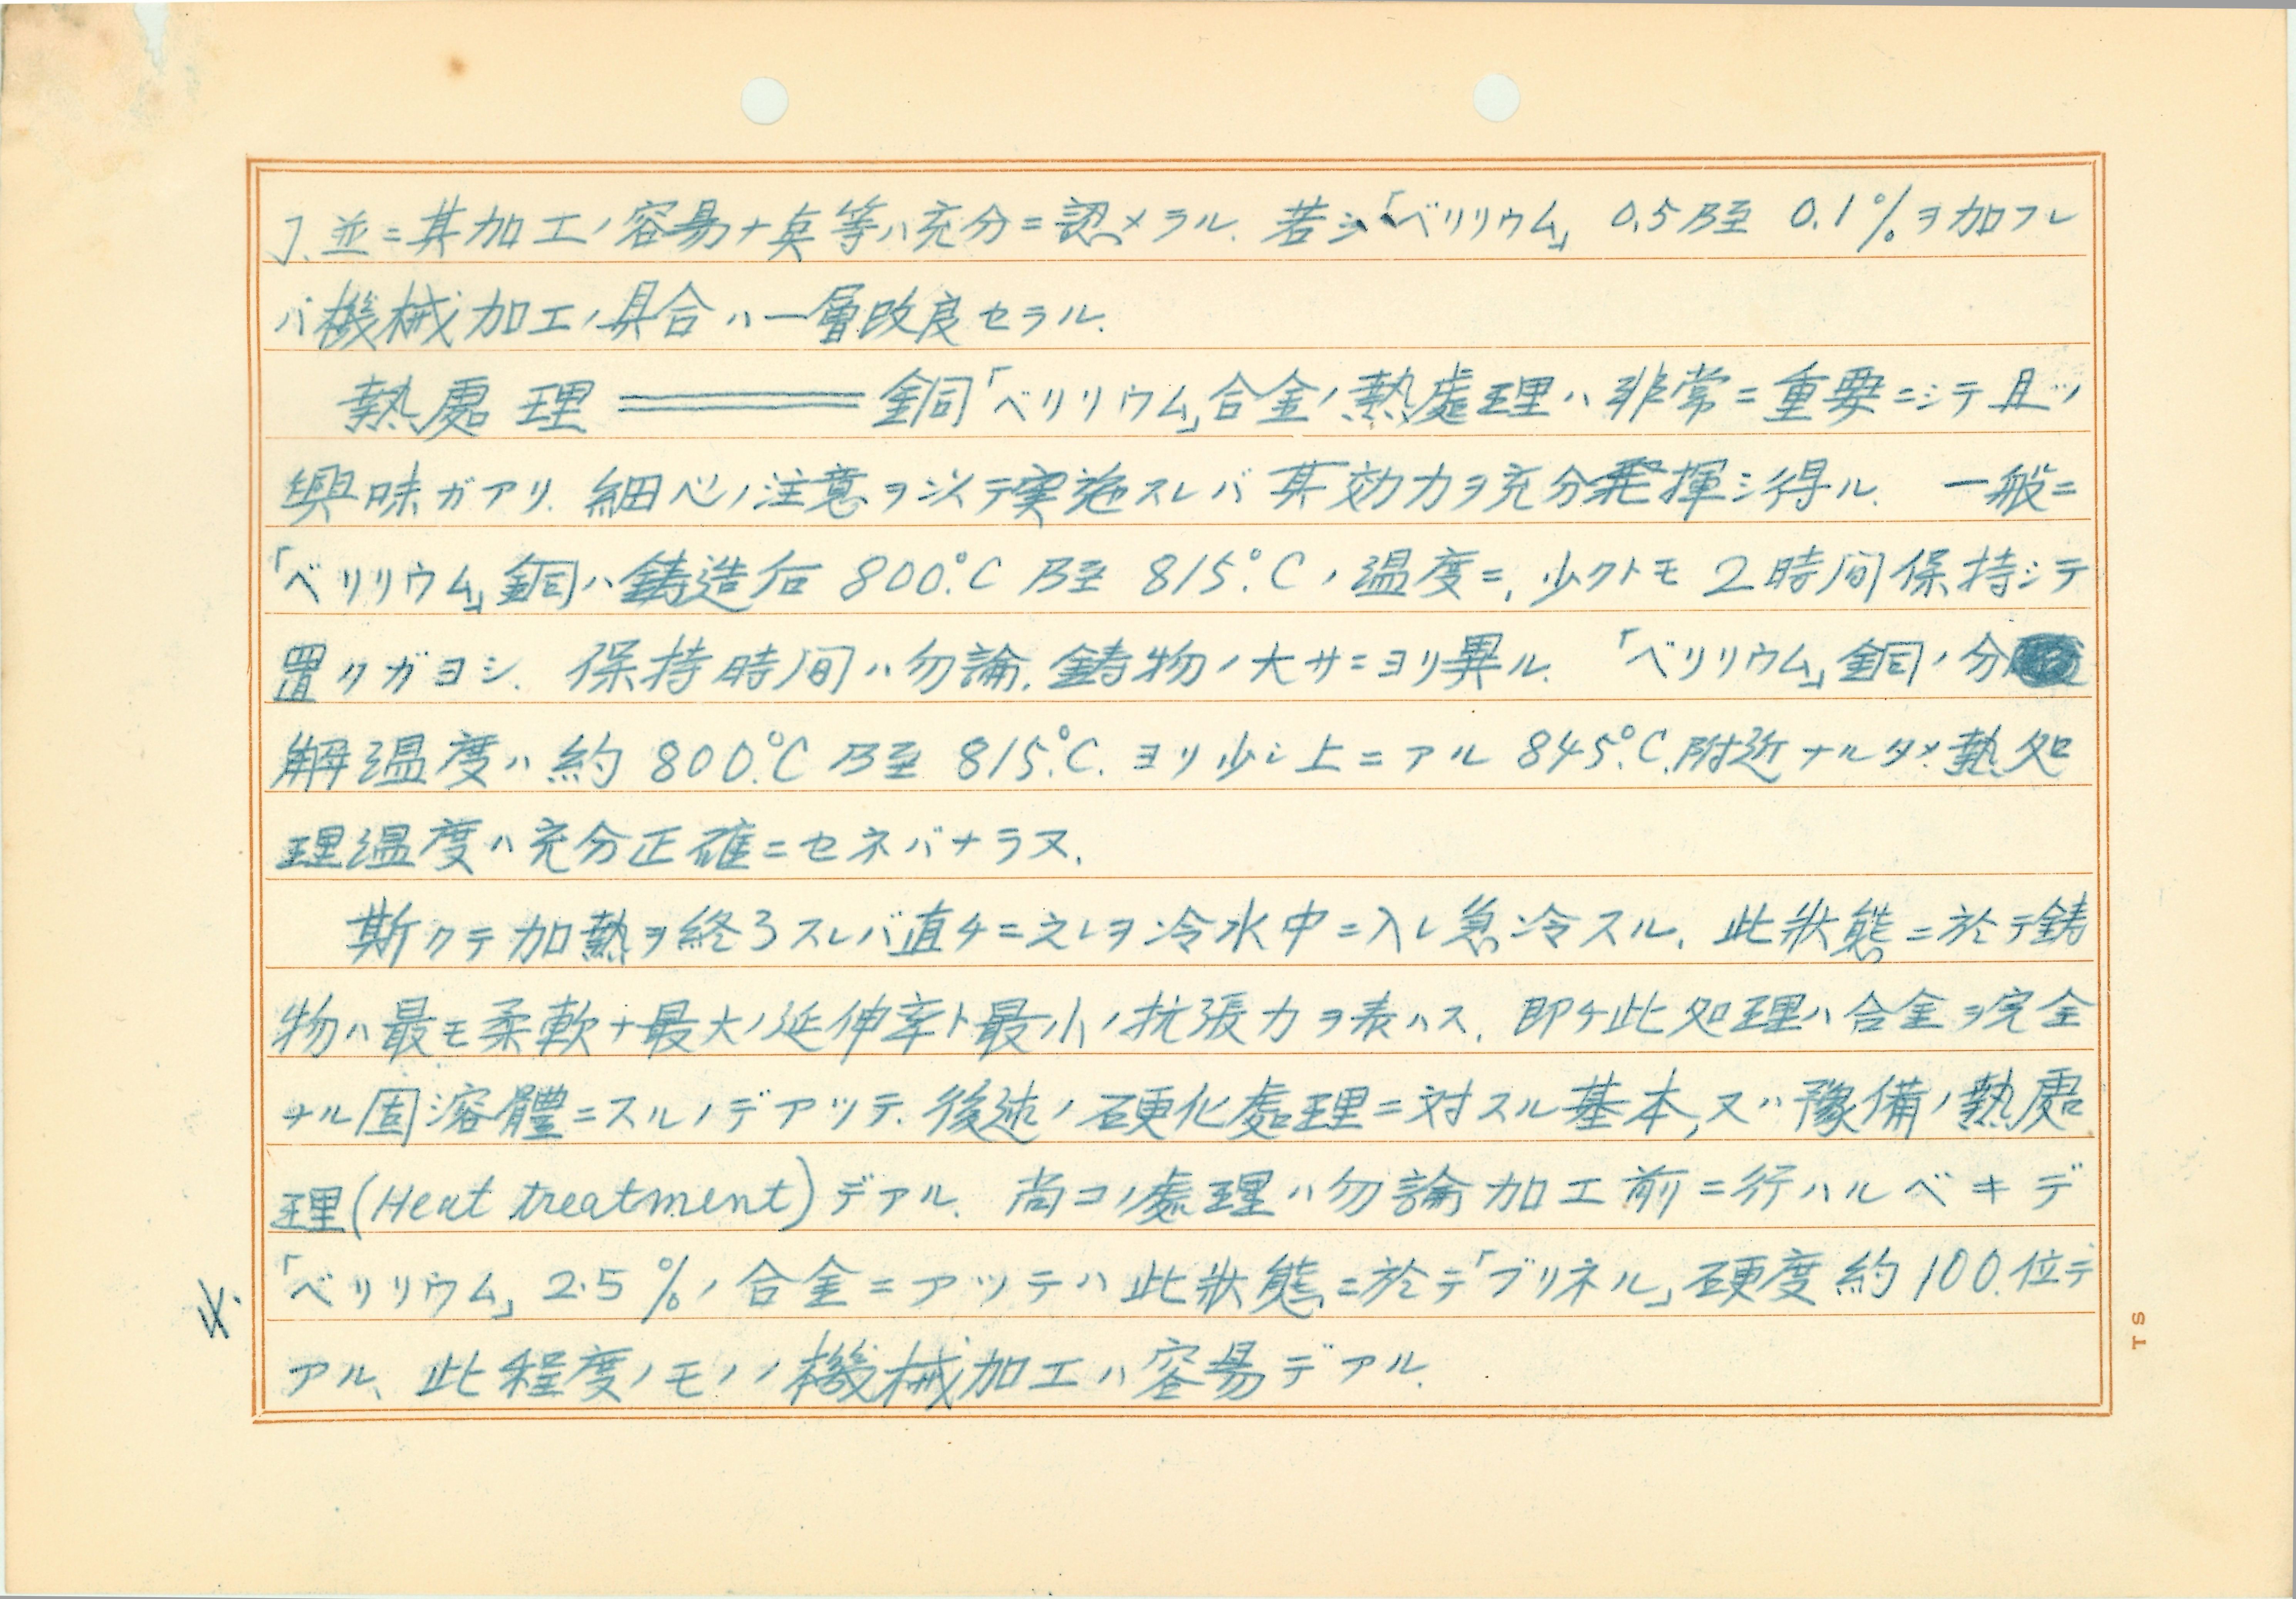 並ニ其加工ノ容易ナ点等ハ充分ニ認メラル、若シ「ベリリウム」0.5乃至0.1%ヲ加フレ
バ機械加工ノ具合ハ一層改良セラル、
熱處理═══銅「ベリリウム」合金ノ熱處理ハ非常ニ重要ニシテ且ツ
興味ガアリ、細心ノ注意ヲ以テ実施スレバ其効力ヲ充分発揮シ得ル、一般ニ
「ベリリウム」銅ハ鋳造后800.°C乃至815.°Cノ温度ニ、少クトモ2時間保持シテ
置クガヨシ、保持時間ハ勿論、鋳物ノ大サニヨリ異ル、「ベリリウム」銅ノ分
解温度ハ約800.°C乃至815.°C.ヨリ少シ上ニアル845.°C.附近ナルタメ熱処
理温度ハ充分正確ニセネバナラヌ、
斯クテ加熱ヲ終ヲスレバ直チニ之レヲ冷水中ニ入レ急冷スル、此狀態ニ於テ鋳
物ハ最モ柔軟ナ最大ノ延伸率ト最小ノ抗張力ヲ表ハス、即チ此処理ハ合金ヲ完全
ナル固溶體ニスルノデアツテ、後述ノ硬化處理ニ対スル基本,又ハ豫備ノ熱處
理(Heat treatment)デアル、尚コノ處理ハ勿論加工前ニ行ハルベキデ
「ベリリウム」2.5%ノ合金ニアツテハ此狀態ニ於テ「ブリネル」硬度約100.位デ
アル、此程度ノモノノ機械加工ハ容易デアル、
TS